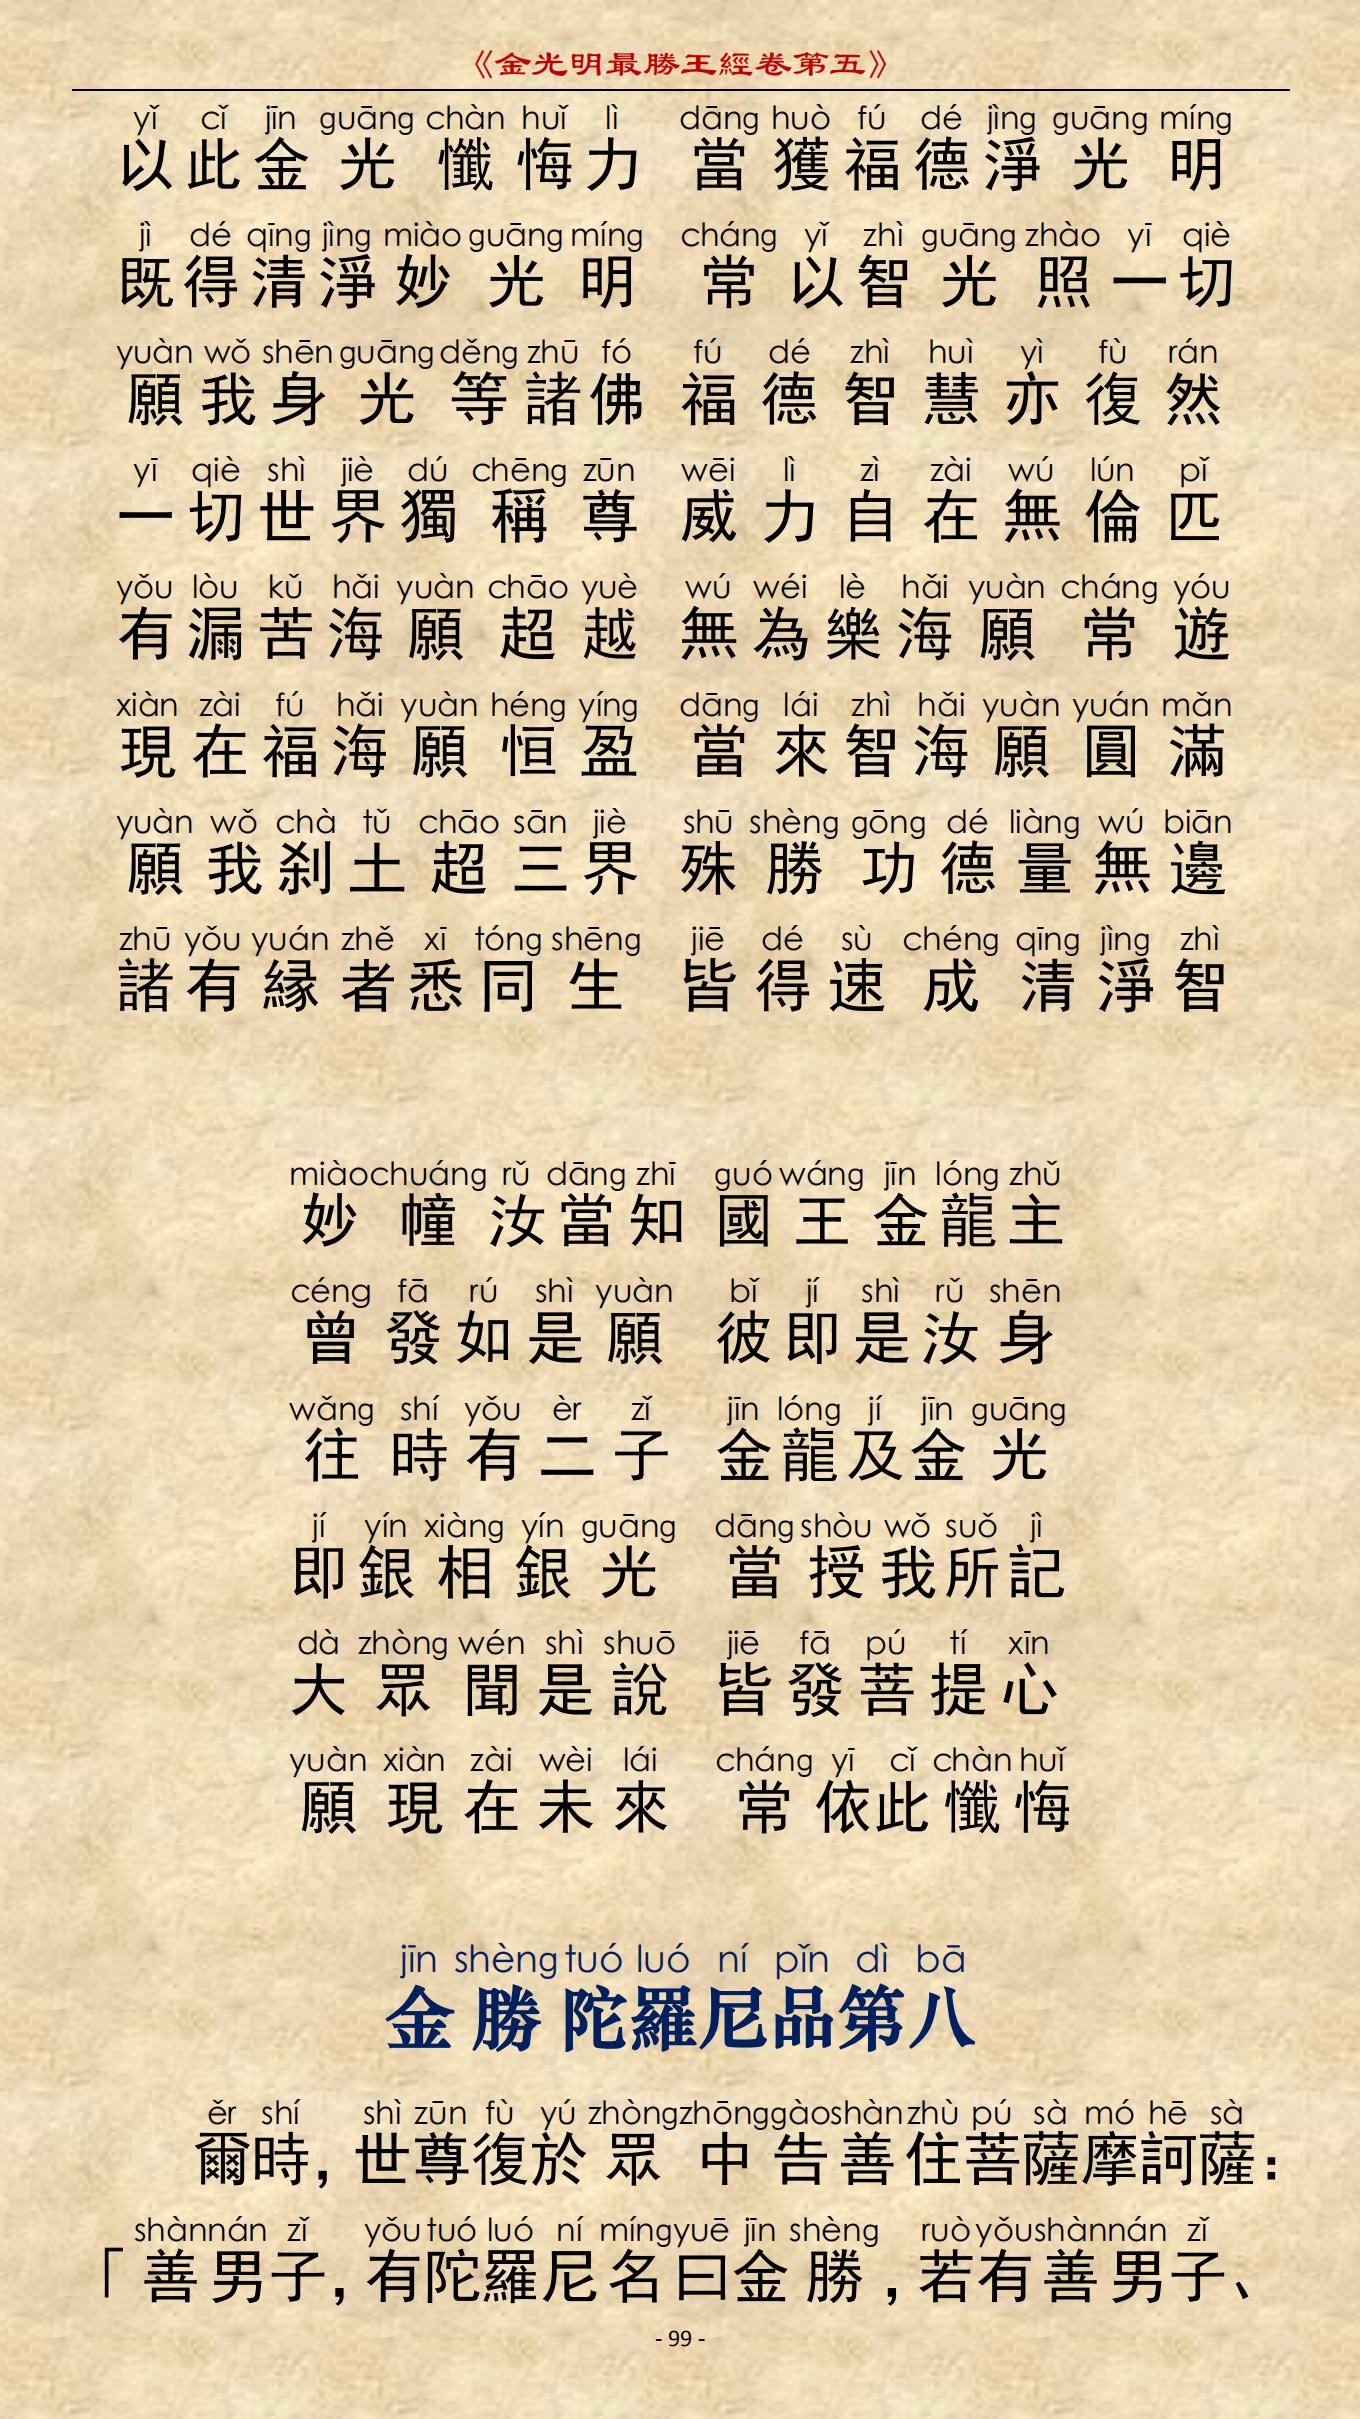 《金光明最勝王經卷第五》
yǐ cǐ jīn guāng chàn huǐ lì dāng huò fú dé jìng guāng míng
以此金光懺悔力 當獲福德淨光明
jì dé qīng jìng miào guāng míng cháng yǐ zhì guāng zhào yī qiè
既得清淨妙光明 常以智光照一切
yuàn wǒ shēn guāng děng zhū fó fú dé zhì huì yì fù rán
願我身光等諸佛 福德智慧亦復然
yī qiè shì jiè dú chēng zūn wēi lì zì zài wú lún pǐ
一切世界獨稱尊 威力自在無倫匹
yǒu lòu kǔ hǎi yuàn chāo yuè wú wéi lè hǎi yuàn cháng yóu
有漏苦海願超越 無為樂海願常遊
xiàn zài fú hǎi yuàn héng yíng dāng lái zhì hǎi yuàn yuán mǎn
現在福海願恒盈 當來智海願圓滿
yuàn wǒ chà tǔ chāo sān jiè shū shèng gōng dé liàng wú biān
願我剎土超三界 殊勝功德量無邊
zhū yǒu yuán zhě xī tóng shēng jiē dé sù chéng qīng jìng zhì
諸有緣者悉同生 皆得速成清淨智
miào chuáng rǔ dāng zhī guó wáng jīn lóng zhǔ
妙幢汝當知 國王金龍主
céng fā rú shì yuàn bǐ jí shì rǔ shēn
曾發如是願 彼即是汝身
wǎng shí yǒu èr zǐ jīn lóng jí jīn guāng
往時有二子 金龍及金光
jí yín xiàng yín guāng dāng shòu wǒ suǒ jì
即銀相銀光 當授我所記
dà zhòng wén shì shuō jiē fā pú tí xīn
大眾聞是說 皆發菩提心
yuàn xiàn zài wèi lái cháng yī cǐ chàn huǐ
願現在未來 常依此懺悔
jīn shèng tuó luó ní pǐn dì bā
金勝陀羅尼品第八
ěr shí shì zūn fù yú zhòng zhōng gào shàn zhù pú sà mó hē sà
爾時，世尊復於眾中告善住菩薩摩訶薩：
shàn nán zǐ yǒu tuó luó ní míng yuē jīn shèng ruò yǒu shàn nán zǐ
「善男子，有陀羅尼名曰金勝，若有善男子、
- 99 -